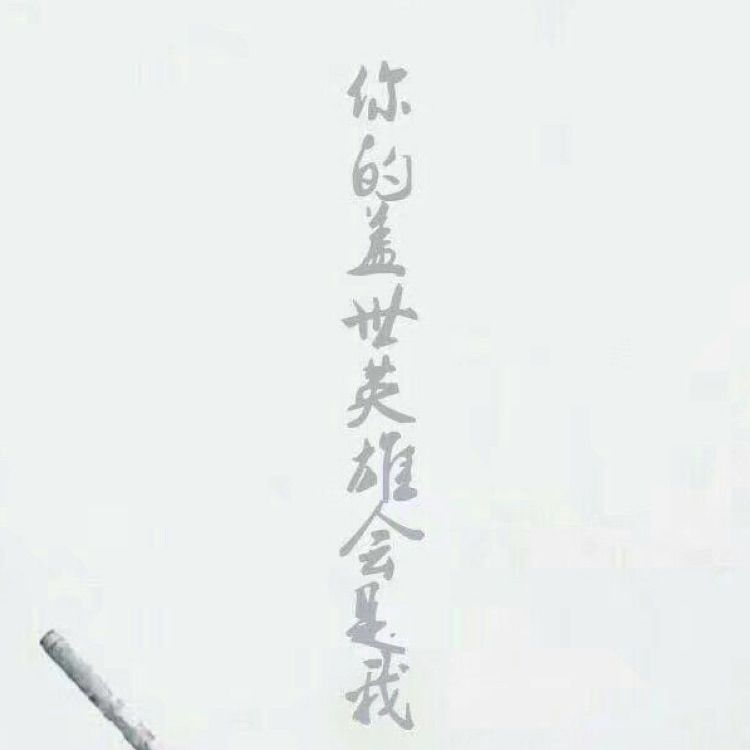 你的盖世英雄会是我